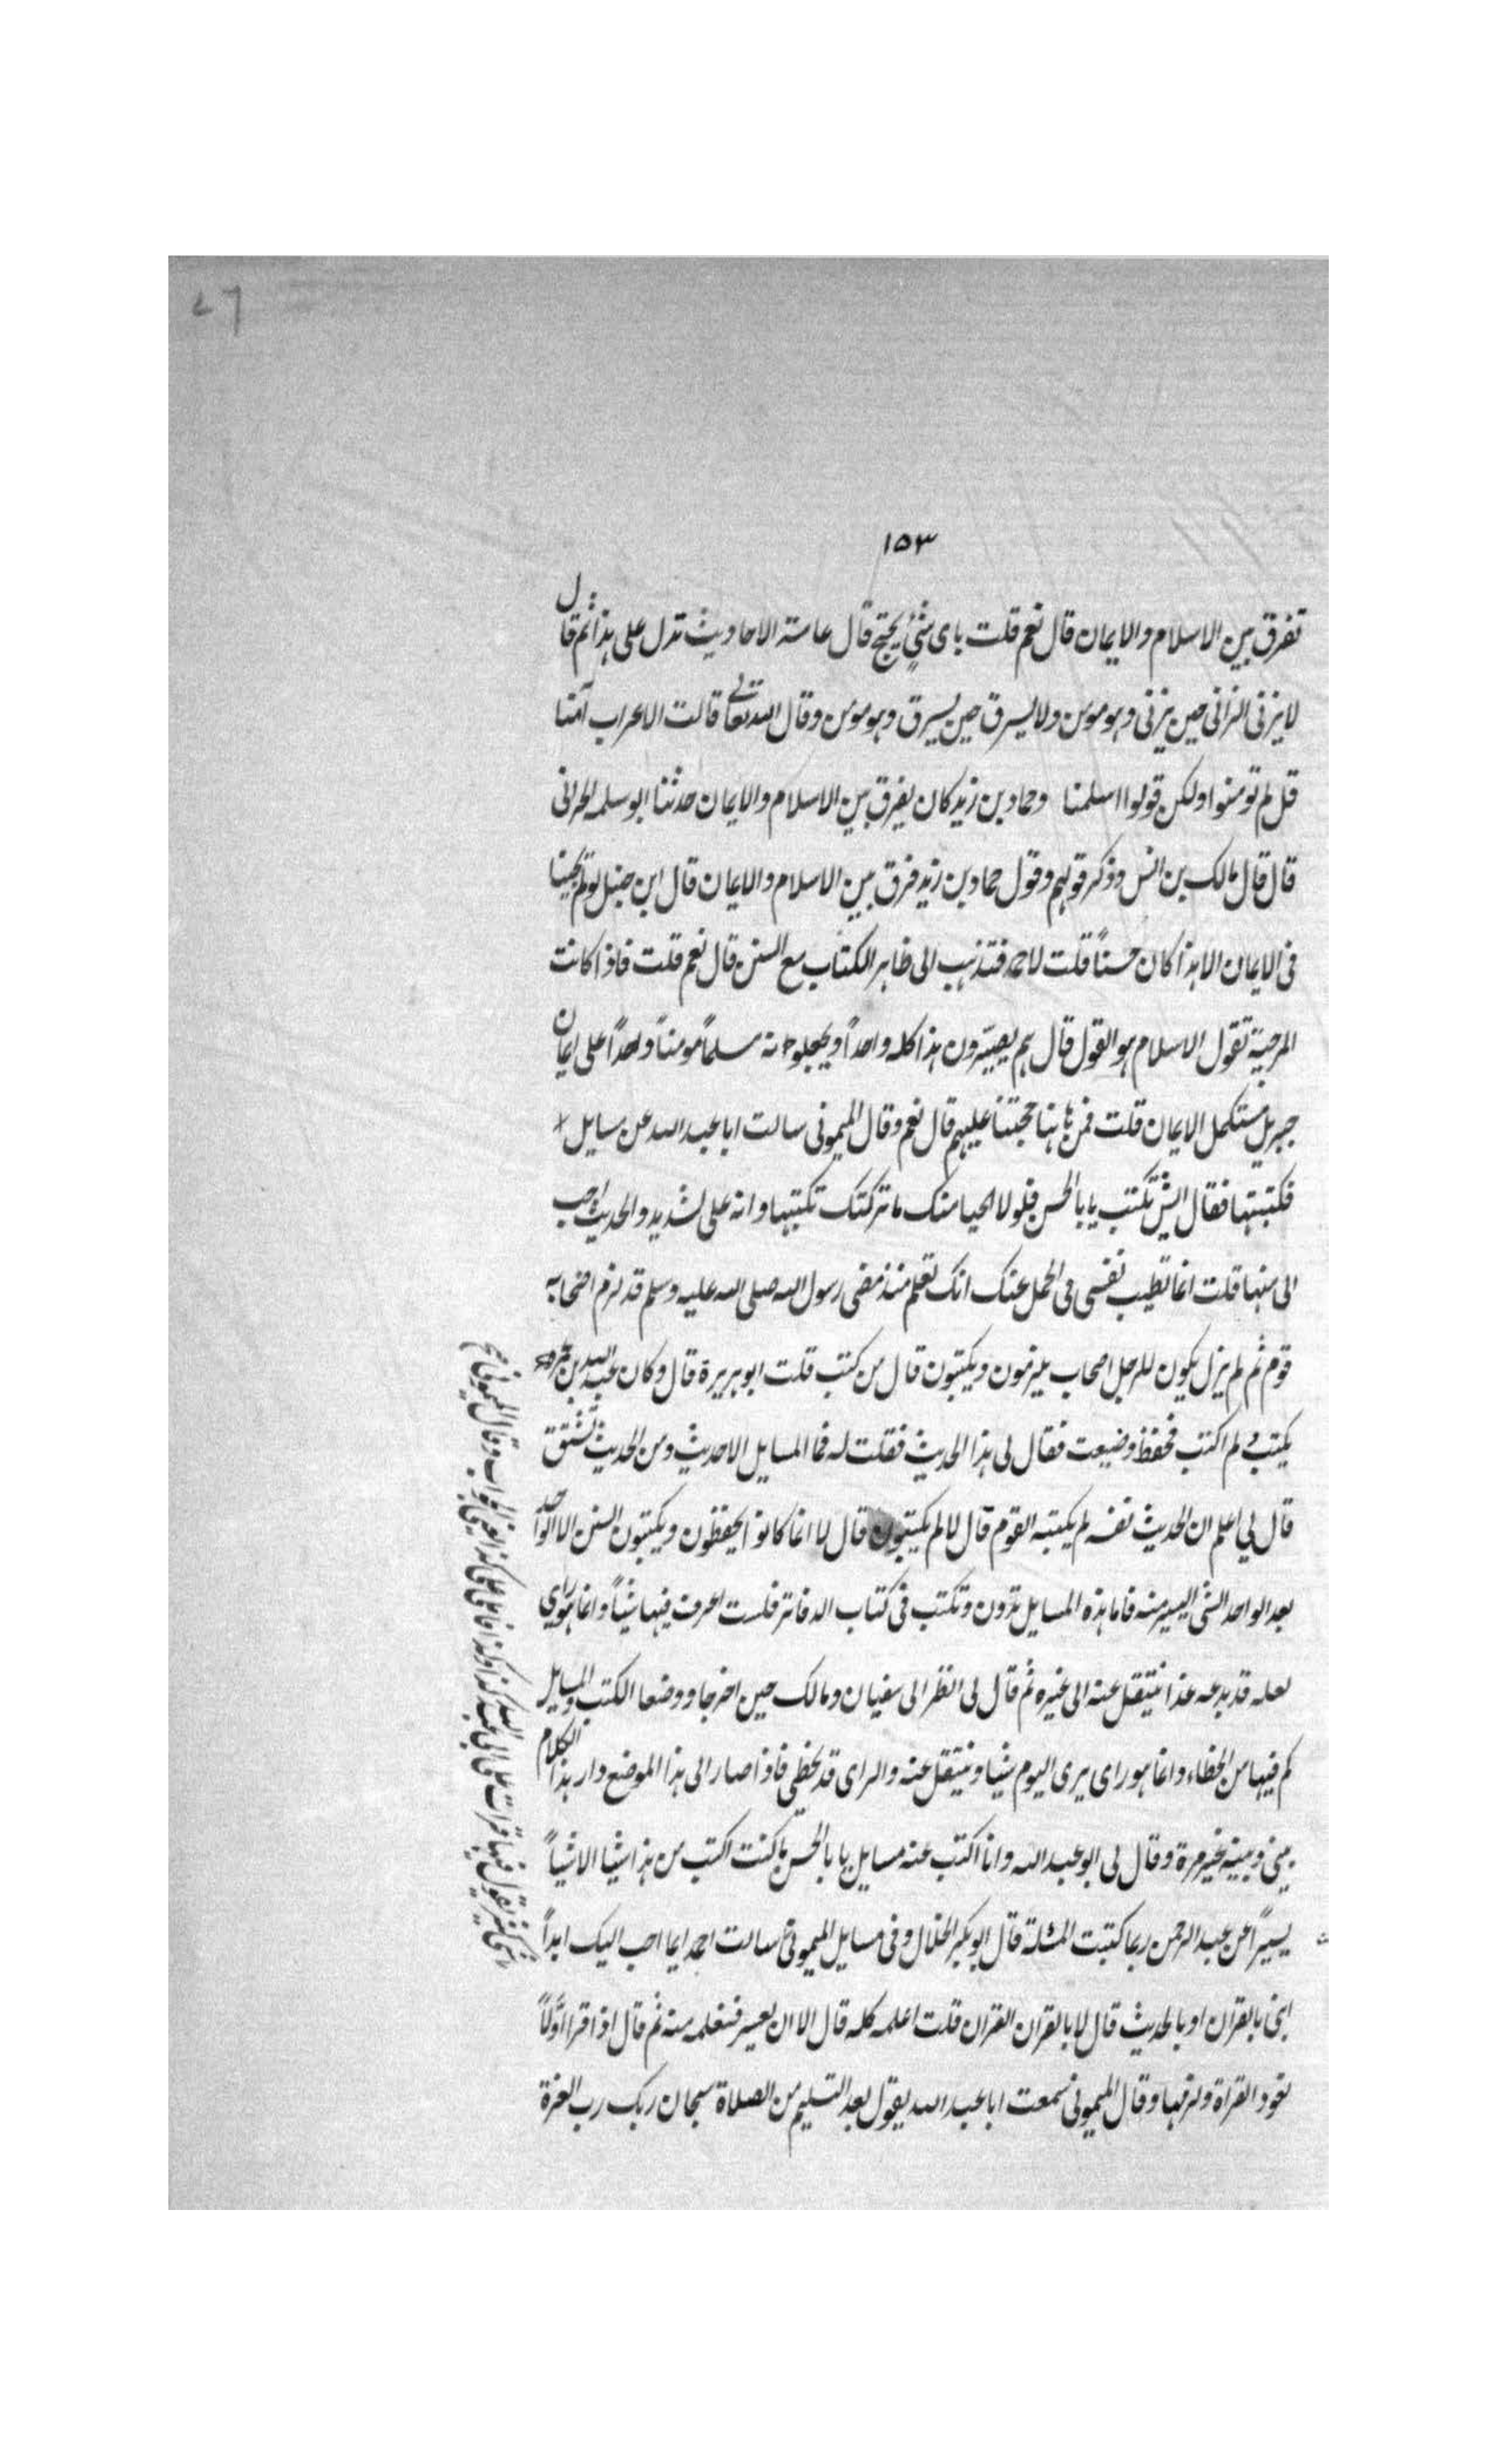 ١٥٣
تفرق بين الاسلام والايمان قال نعم قلت باى شئ يحتج قال عامة الاحاديث تدل على هذا ثم قال
لا يزنى الزانى حين يزنى وهو مومن ولا يسرق حين يسرق وهو مومن وقال الله تعالى قالت الاعراب آمنا
قل لم تومنوا ولكن قولوا اسلمنا وحماد بن زيد كان يفرق بين الاسلام والايمان حدثنا ابو سلمه الحرانى
قال قال مالك بن انس وذكر قولهم وقول حماد بن زيد فرق بين الاسلام والايمان قال ابن حنبل لو لم يجئنا
فى الايمان الا هذا كان حسناً قلت لاحمد فتذهب الى ظاهر الكتاب مع السنن قال نعم قلت فاذا كانت
المرجية تقول الاسلام هو القول قال هم يصيّرون هذا كله واحداً ويجعلونه مسلماً مومناً واحداً على ايمان
جبريل مستكمل الايمان قلت فمن هاهنا حجتنا عليهم قال نعم وقال الميمونى سالت ابا عبد الله عن مسايل
فكتبتها فقال ايش تكتب يا با الحسن فلولا الحيا منك ما تركتك تكتبها وانه على لشديد والحديث احب
الى منها قلت انما تطيب نفسى فى الحمل عنك انك تعلم منذ مضى رسول الله صلى الله عليه وسلم قد لزم اصحابه
قوم ثم لم يزل يكون للرجل اصحاب يلزمون ويكتبون قال من كتب قلت ابو هريرة قال وكان عبد الله بن عمرو
يكتب ولم اكتب فحفظ وضيعت فقال لى هذا الحديث فقلت له فما المسايل الا حديث ومن الحديث تشتق
قال لي اعلم ان الحديث نفسه لم يكتبه القوم قال لا لم يكتبون قال لا انما كانوا يحفظون ويكتبون السنن الا الواحد
بعد الواحد الشى اليسير منه فاما هذه المسايل تدون وتكتب فى كتاب الدفاتر فلست اعرف فيها شياً وانما هو راى
لعله قد يدعه غدا فينتقل عنه الى غيره ثم قال لى انظر الى سفيان ومالك حين اخرجا ووضعا الكتب والمسايل
كم فيها من الخطاء وانما هو راى يرى اليوم شيا وينتقل عنه والراى قد يخطى فاذا صار الى هذا الموضع دار هذا الكلام
بينى وبينه غير مرة وقال لى ابو عبد الله وانا اكتب عنه مسايل يا با الحسن ما كنت اكتب من هذا شيا الا شياً
يسيراً عن عبد الرحمن ربما كتبت المسئلة قال ابو بكر الخلال وفى مسايل الميمونى سالت احمد ايما احب اليك ابدا
ابنى بالقران او بالحديث قال لا بالقران القران قلت اعلمه كله قال الا ان يعسر فتعلمه منه ثم قال اذا قرا اولاً
تعود القراة ولزمها وقال الميمونى سمعت ابا عبد الله يقول بعد التسليم من الصلاة سبحان ربك رب العزة